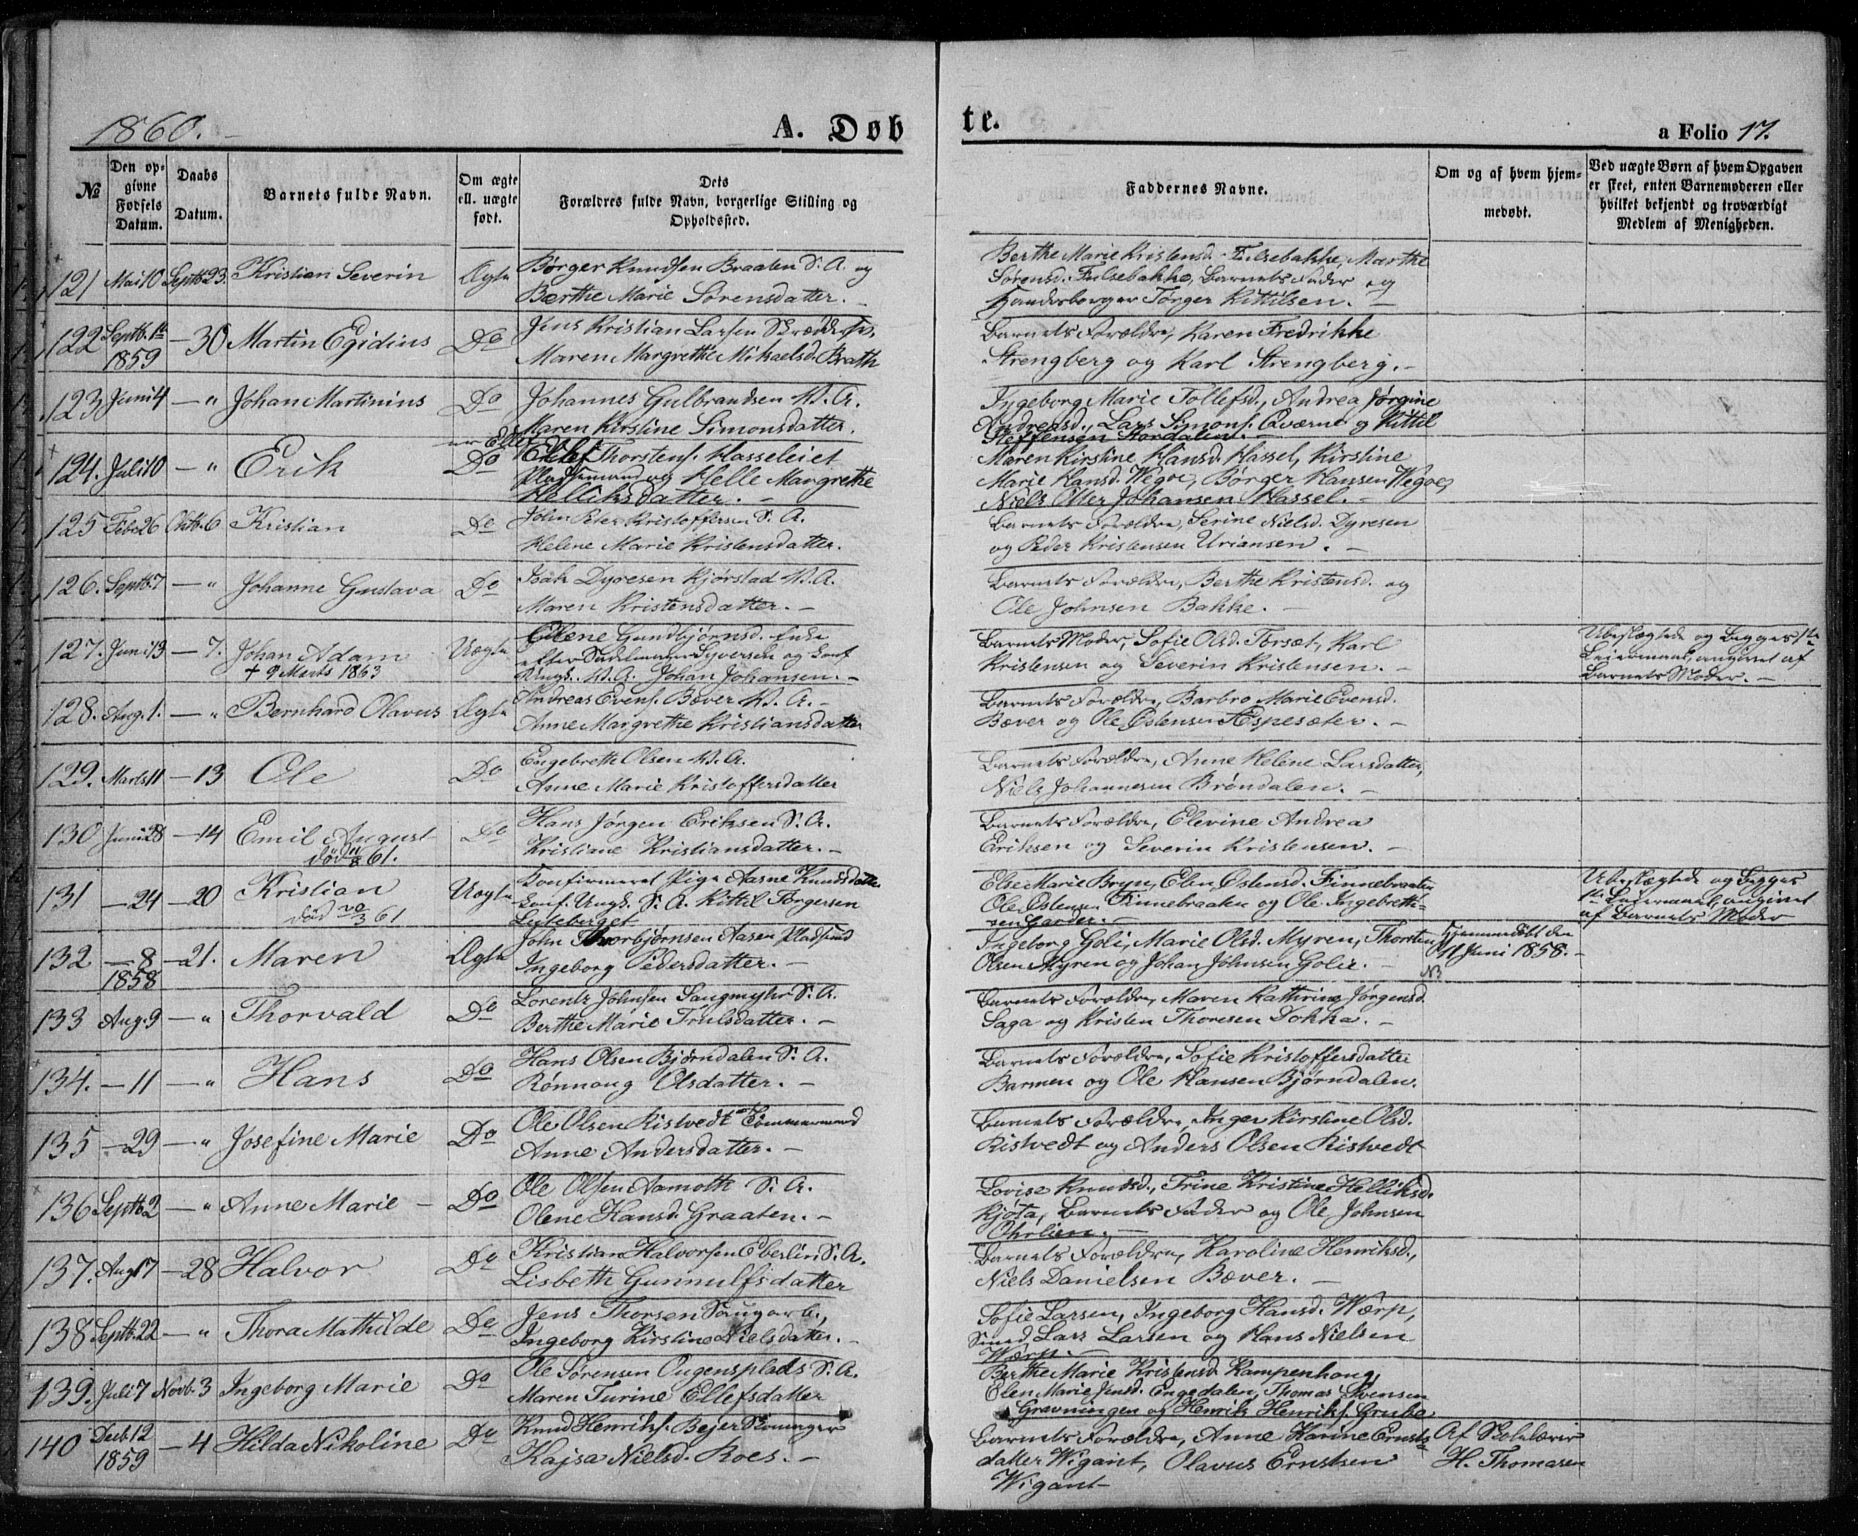 1860. A. Døbte. a Folio 17.
№ | Den opgivne Fødsels Datum. | Daabs Datum. | Barnets fulde Navn. | Om ægte ell. uægte født. | Dets Forældres fulde Navn, borgerlige Stilling og Opholdssted. | Faddernes Navne. | Om og af hvem hjemmedøbt. | Ved uægte Børn af hvem Opgaven er skeet, enten Barnemoderen eller hvilket bekjendt og troværdigt Medlem af Menigheden.
121 Mai 10 Septb. 23. Kristian Severin Ægte Børger Knudsen Braaten S. A. og
Berthe Marie Sørensdatter. –
Berthe Marie Kristensd. Fulsebakke, Marthe
Sørensd. Fulsebakke, Barnets Fader og
Tørger Kittilsen. –
122 Septb. 1ste 1859 – 30 Martin Egidius Do Jens Kristian Larsen
Maren Margrethe Mikaelsd. Brath
Barnets Forældre, Karen Fredrikke
Strengberg og Karl Strengberg. –
123 Juni 4 – " Johan Martinius Do Johannes Gulbrandsen K. A.
Maren Kirstine Simonsdatter.
Ingeborg Marie Tollefsd., Andrea Jørgine
Andreasd., Lars Simons. Qværne og Kittil
Steffensen Stordalen. –
124. Juli 10 – " Erik Do Ellef Thorstens. Hasseleiet
Pladsemand og Helle Margrethe
Helliksdatter. –
Maren Kirstine Hansd. Hassel, Kirstine
Marie Hansd. Wegoe, Børger Hansen Wegoe,
Niels Otter Johansen Hassel. –
125 Feb. 26 Oktb. 6 Kristian Do John Peter Kristoffersen S. A.
Helene Marie Kristensdatter.
Barnets Forældre, Serine Nielsd. Dyresen
og Peder Kristensen Uriansen. –
126. Septb. 7 – " Johanne Gustava Do Isak Dyresen Kjørstad K. A.
Maren Kristensdatter. –
Barnets Forældre, Berthe Kristensd. og
Ole Johnsen Bakke. –
127. Juni 13 – 7. Johan Adam Uægte Elene Gundbjørnsd. Enke
+ 9 Marts 1863
efter Sadelmager Syversen og Conf
Ungk. K. A. Johan Johansen. –
Barnets Moder, Sofie Olsd. Torsæt, Karl
Kristensen og Severin Kristensen. –
Ubeslægtede og Begges 1ste
Leiermaal, angivet af
Barnets Moder. –
128. Aug. 1. – " Bernhard Olavus Ægte Andreas Evens. Bæver K. A. –
Anne Margrethe Kristiansdatter
Barnets Forældre, Barbro Marie Evensd.
Bæver og Ole Østensen Æspesæter. –
129. Marts 11 – 13 Ole Do Engebreth Olsen K. A.
Anne Marie Kristoffersdatter
Barnets Forældre, Anne Helene Larsdatter,
Niels Johannesen Brøndalen. –
130 Juni 28 – 14 Emil August Do Hans Jørgen Eriksen S. A.
død 11/8 61.
Kristiane Kristiansdatter. –
Barnets Forældre, Elevine Andrea
Eriksen og Severin Kristensen. –
131 – 24 – 20 Kristian Uægte Konfirmeret Pige Aasne Knudsdatter
død 20/3 61
Conf. Ungk. S. A. Kittil Tørgersen
Luteberget
Else Marie Bryn, Elen Østensd. Finnebraaten
Ole Østensen Finnebraaten og Ole Ingebreth-
sen Garder. –
Ubeslægtede og Begges
1ste Leiermaal, angivet
af Barnets Moder
132 – 8 1858 – 21. Maren Ægte John Thorbjørnsen Aasen Pladsmd
Ingeborg Pedersdatter. –
Ingeborg Goli, Marie Olsd. Myren, Thorsten
Olsen Myren og Johan Johnsen Golie. –
Hjemmedøbt den
11 Juni 1858. –
NB
133 Aug. 9 – " Thorvald Do Lorentz Johnsen Saugmyhr S. A.
Berthe Marie Trulsdatter. –
Barnets Forældre, Maren Kathrine Jørgensd.
Saga og Kristen Thoresen Dokka. –
134. – 11 – " Hans Do Hans Olsen Bjørndalen S. A.
Rønnaug Olsdatter. –
Barnets Forældre, Sofie Kristoffersdatter
Barmen og Ole Hansen Bjørndalen.
135 – 29 – " Josefine Marie Do Ole Olsen Ristvedt Tømmermand
Anne Andersdatter. –
Barnets Forældre, Inger Kirstine Olsd.
Ristvedt og Anders Olsen Ristvedt
136 Septb. 2 – " Anne Marie – Do Ole Olsen Aamoth S. A.
Olene Hansd. Graaten. –
Lovise Knudsd., Trine Kristine Helliksd.
Kjøta, Barnets Fader og Ole Johnsen
Øhrlien. –
137. Aug. 17 – 28 Halvor Do Kristian Halvorsen Eberlin S. A.
Lisbeth Gunnulfsdatter
Barnets Forældre, Karoline Henriksd.,
Niels Danielsen Bæver. –
138 Septb. 22 – " Thora Mathilde Do Jens Thorsen Saugarb.,
Ingeborg Kirstine Nielsdatter. –
Sofie Larsen, Ingeborg Hansd. Wærp,
Smed Lars Larsen og Hans Nielsen
Wærp. –
139. Juli 7 Novb. 3 Ingeborg Marie Do Ole Sørensen Eugensplads S. A.
Maren Turine Ellefsdatter
Berthe Marie Kristensd. Kampenhaug,
Elen Marie Jensd. Engedalen, Thomas Svensen
Gravningen og Henrik Henriks. Grube
140 Decb. 12 1859 – 4 Hilda Nikoline Do Knud Henriks. Bejer Skoninger
Kajsa Nielsd. Roes. –
Barnets Forældre, Anne Karine Ernsts
datter Wigant, Olavus Ernstsen
Wigant –
Af Skolelærer
H. Thomasen